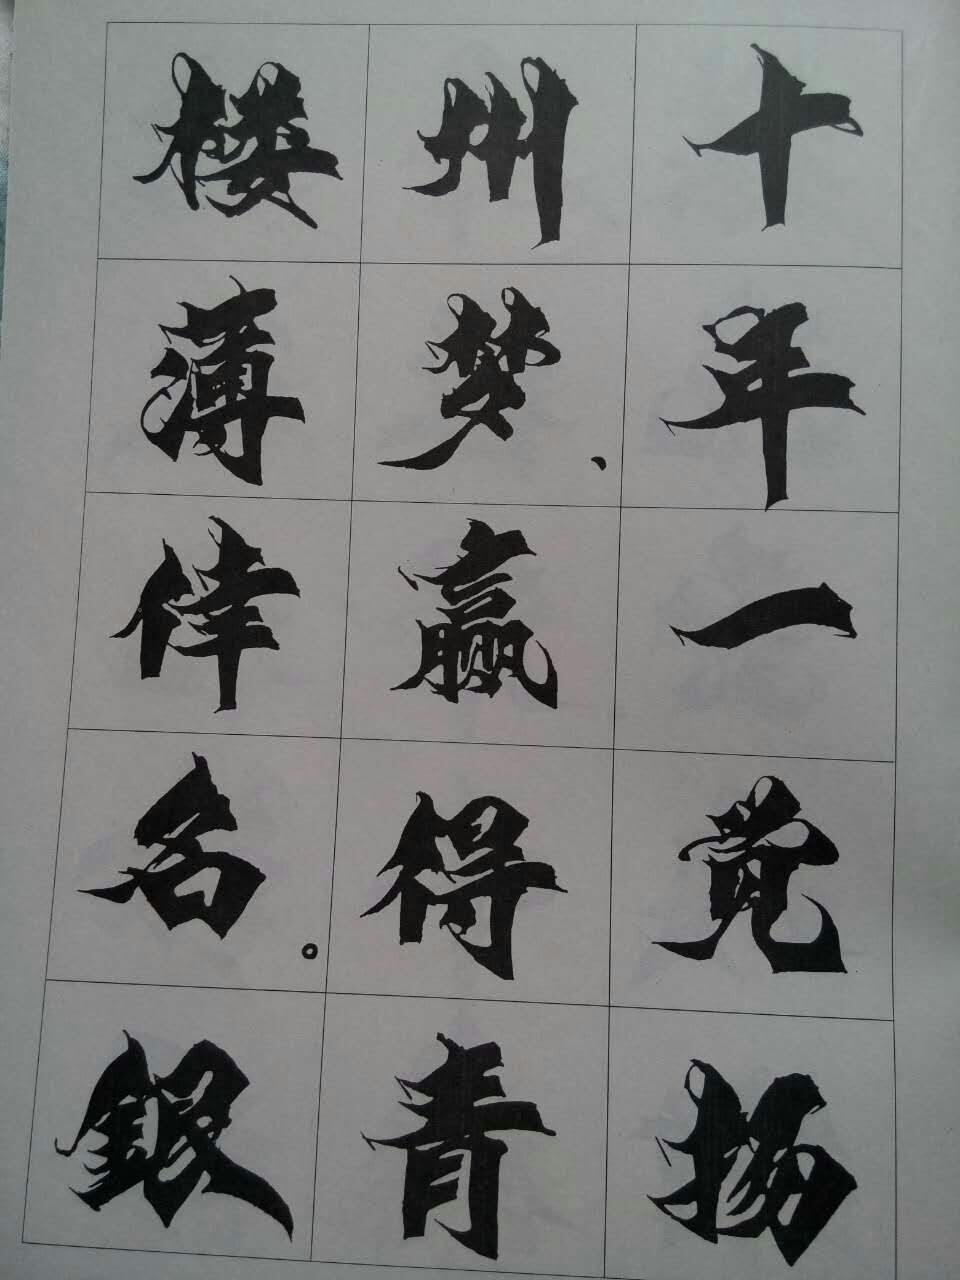 十年一觉扬
州梦、赢得青
楼薄倖名。银